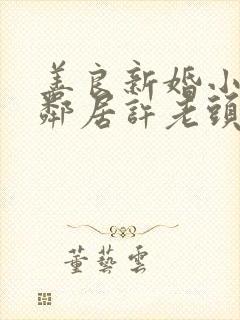 姜良新婚小
鄰居許老頭
董藝雲